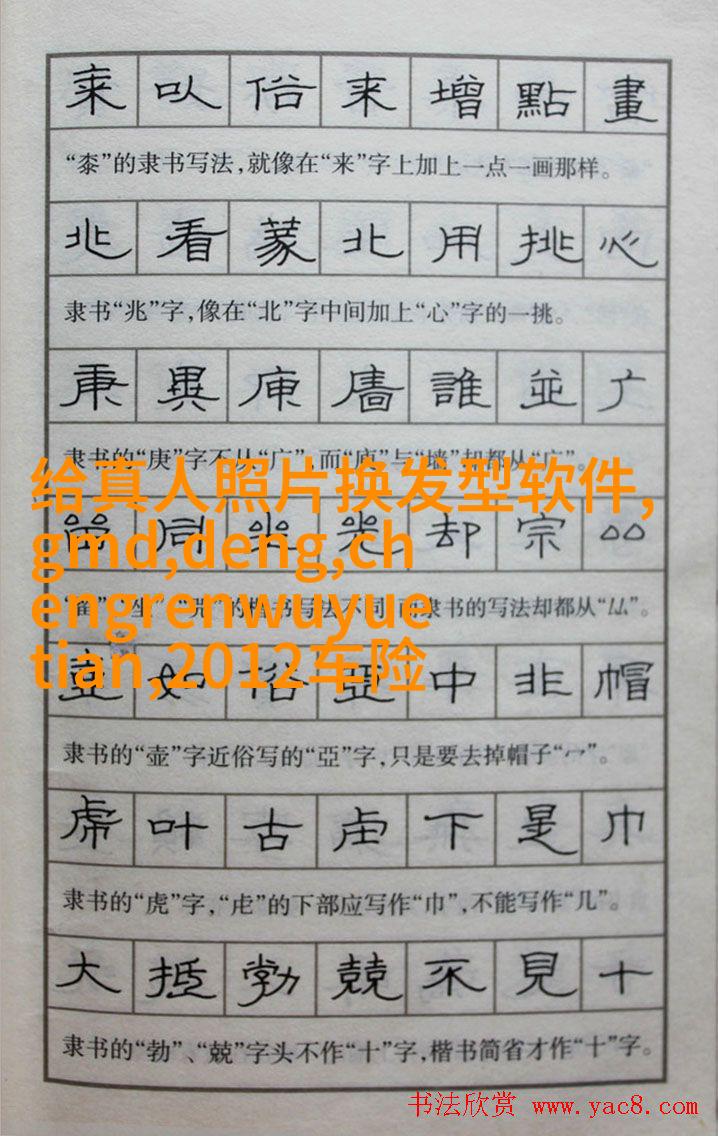 桼㕥俗来增點畫
“桼”的隶书写法，就像在“来”字上加上一点一画那样。
兆看蒙北用挑心
隶书“兆”字，像在“北”字中间加上“心”字的一挑。
庚異庾廧誰並广
隶书的“庚”字不从“广”，而“庾”与“墙”却都从“广”。
给真人照片换发型软件,
同坐光却宗
gmd,deng,ch
的楷书写法不同，而隶书的写法却都从“厸”。
engrenwuyue
tian,2012车险
壶如俗亞中非帽
隶书的“壶”字近俗写的“亞”字，只是要去掉帽子“宀”。
虎叶古虍下是巾
隶书的“虎”字，“虍”的下部应写作“巾”，不能写作“几”。
大抵勃兢不見十
隶书的“勃”、“兢”字头不作“十”字，楷书简省才作“十”字。
书法欣赏 www.yac8.com